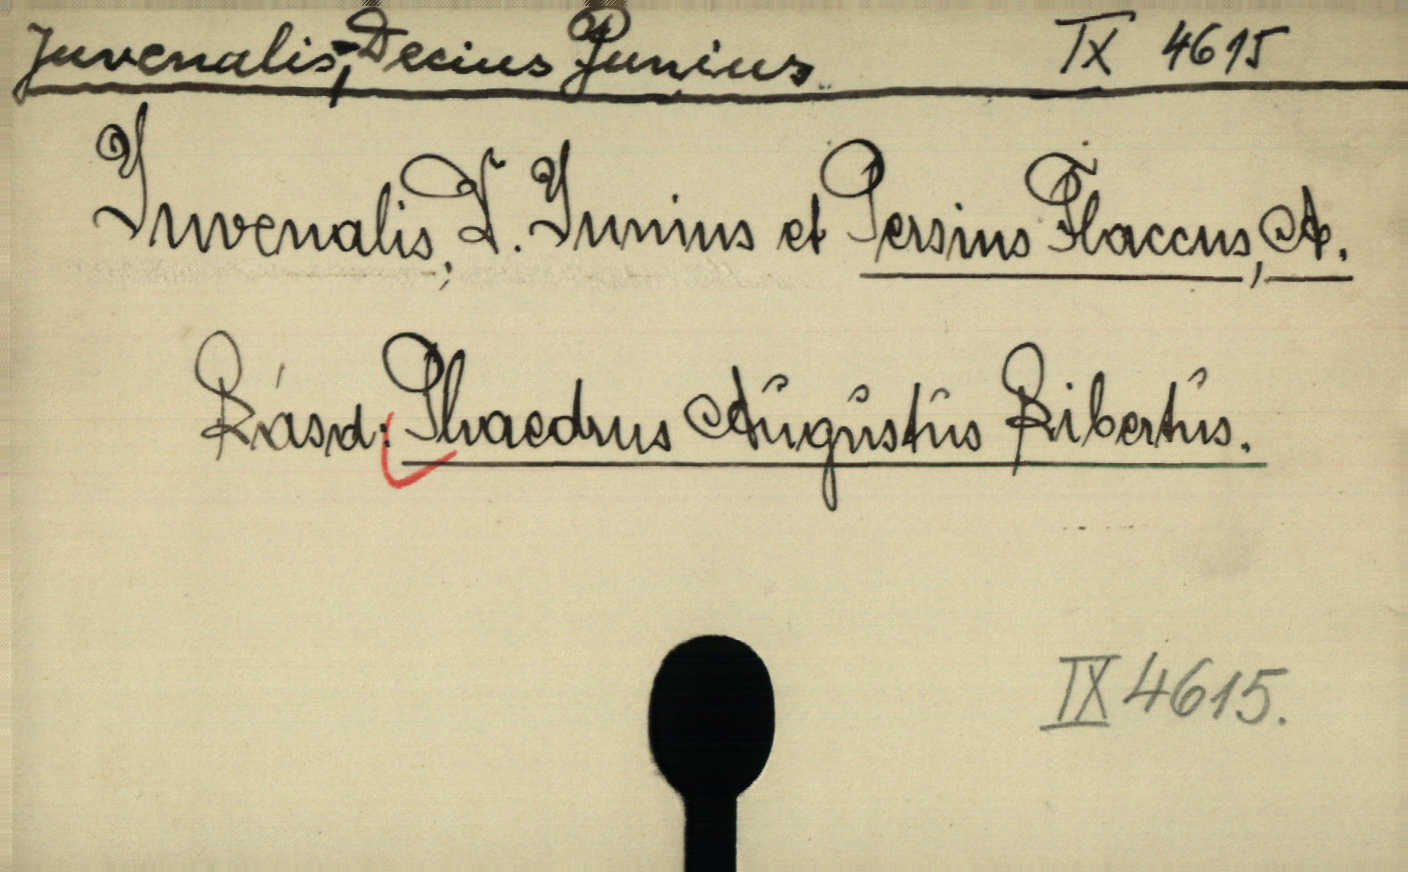 Juvenalis, Decius Junius IX 4615
Juvenalis, D. Junius et Persius Flaccus, A.
Lásd: Phaedrus Augustus Libertus.
IX 4615.